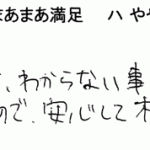 まあまあ満足 ハ やや
、わからない事
ので、安心して